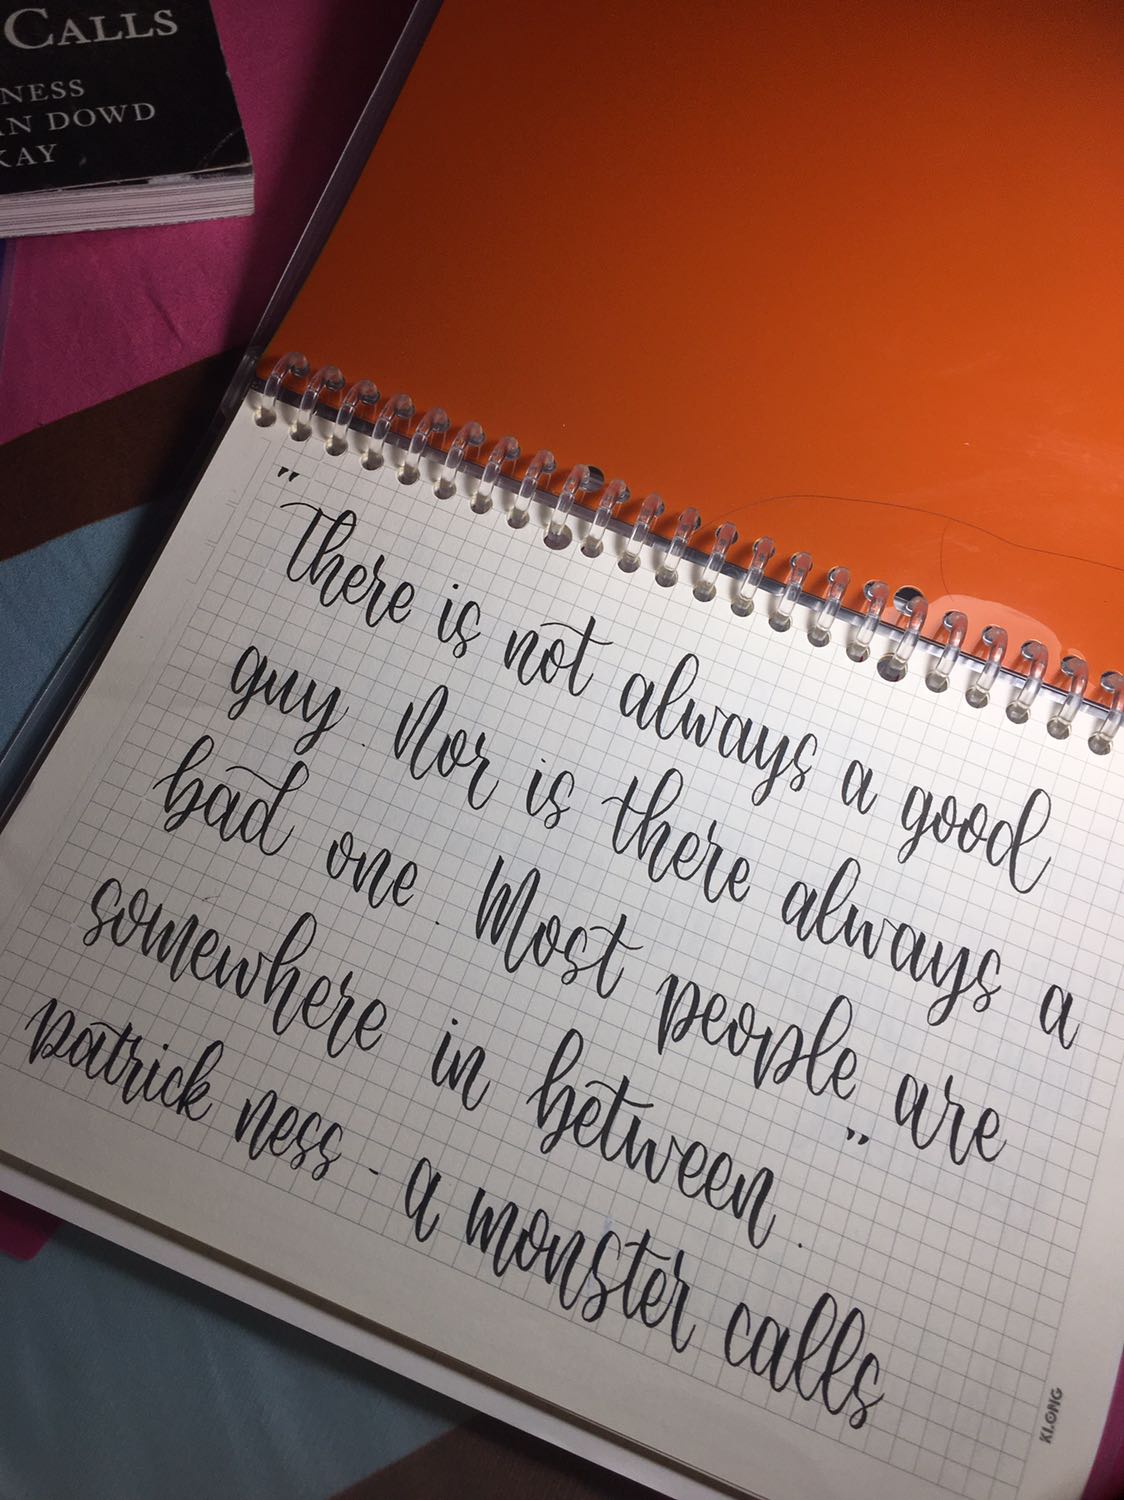 CALLS
NESS
AN DOWD
KAY
"There is not always a good
guy. Nor is there always a
bad one. Most people are
somewhere in between."
patrick ness - a monster calls
KLONG